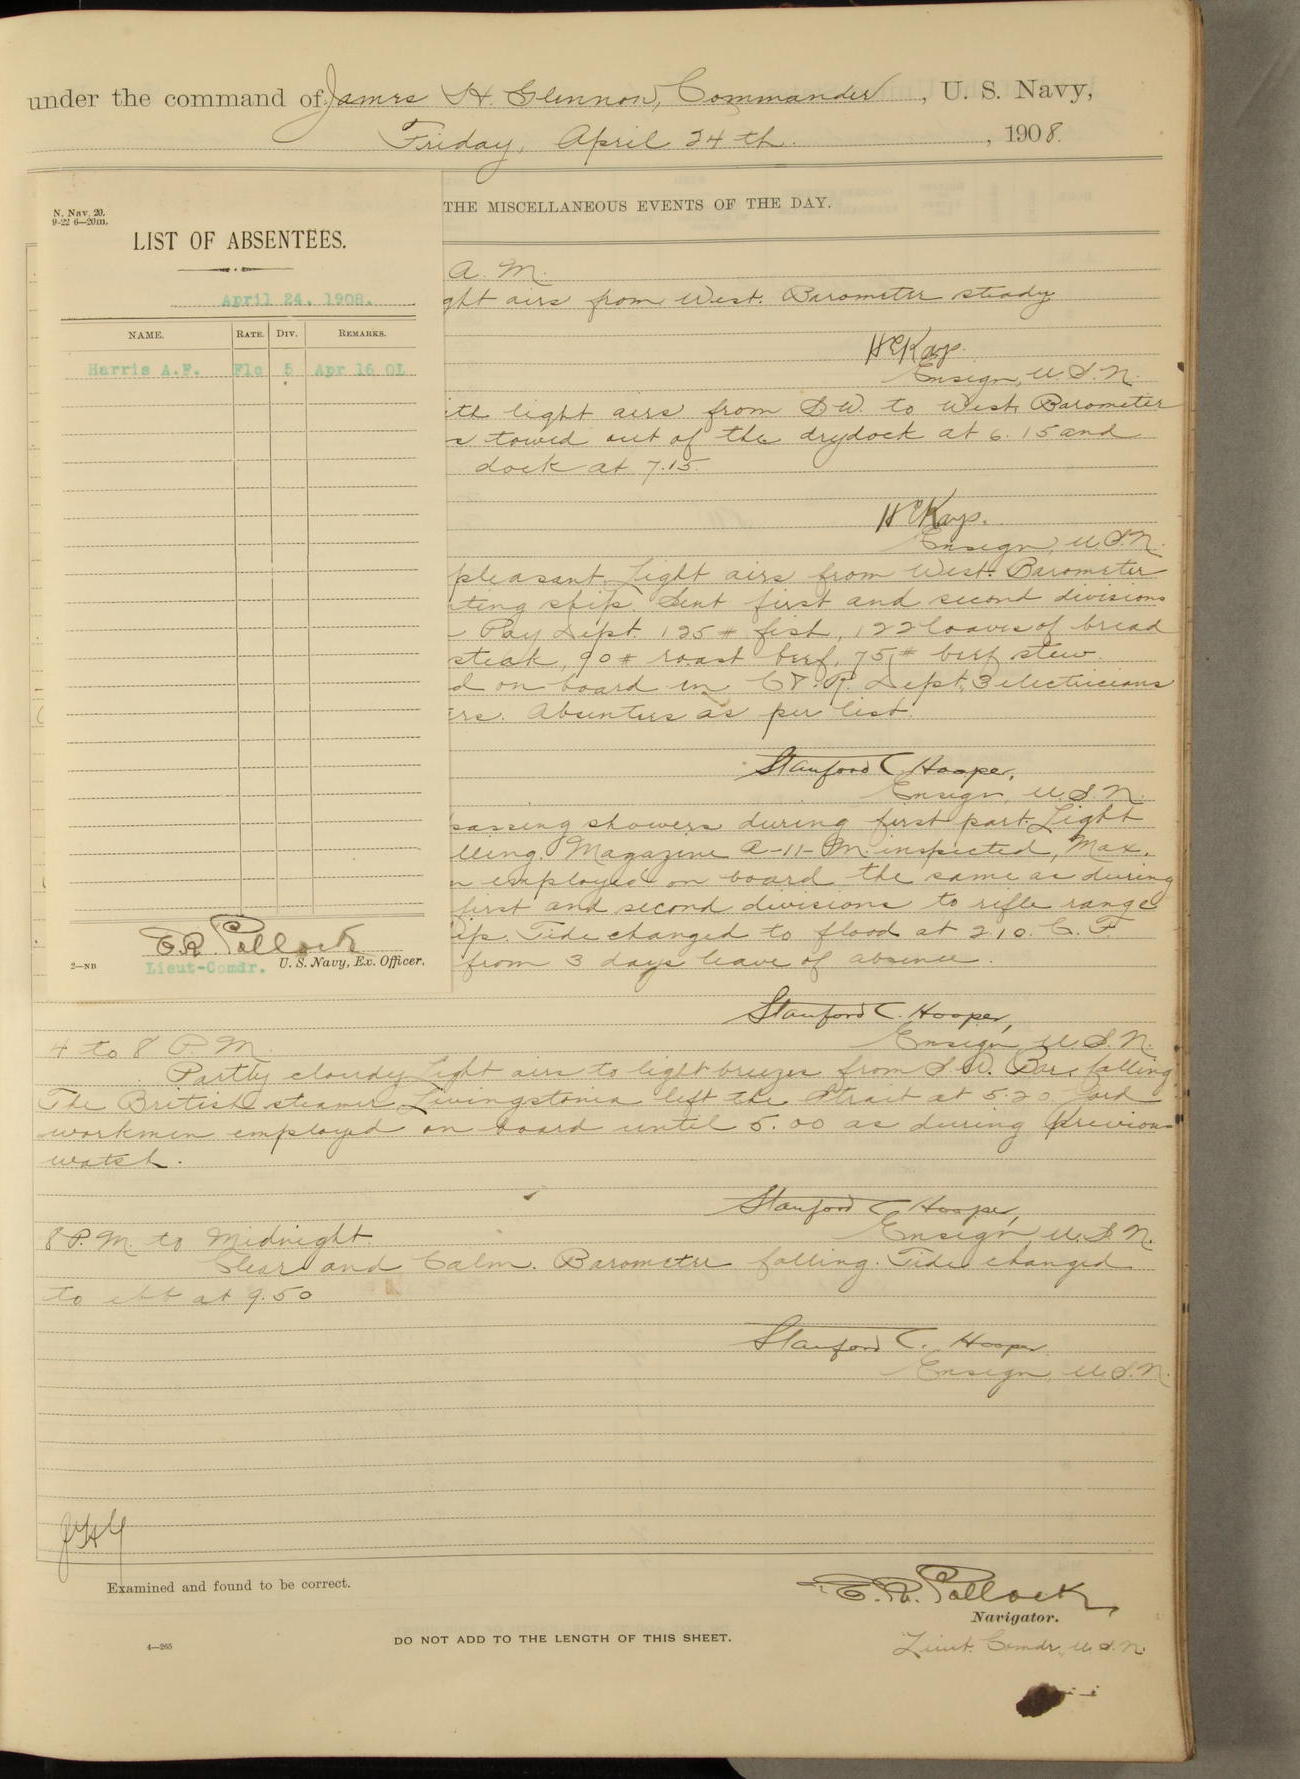 under the command of James H. Glennon, Commander, U. S. Navy,
Friday, April 24th., 1908.
N. Nav. 20.
9-22 6—20m.
LIST OF ABSENTEES.
April 24, 1908.
NAME. RATE. DIV. REMARKS.
Harris A.F. F1c 5 Apr 16 OL
E.R. Pollock
Lieut-Comdr. U. S. Navy, Ex. Officer.
2—NB
THE MISCELLANEOUS EVENTS OF THE DAY.
A. M.
ght airs from West. Barometer steady
H E Kays.
Ensign, U.S.N.
ith light airs from SW. to West. Barometer
s towed out of the drydock at 6.15 and
dock at 7.15.
H E Kays.
Ensign, U.S.N.
pleasant. Light airs from West. Barometer
ting ship. Sent first and second divisions
Pay Dept. 125# fish, 122 loaves of bread
steak, 90# roast beef, 75# beef stew.
d on board in C & R. Dept, 3 electricians
rs. Absentees as per list.
Stanford C Hooper,
Ensign, U.S.N.
passing showers during first part. Light
lling. Magazine A-11-M inspected, Max.
n employed on board the same as during
first and second divisions to rifle range
ip. Tide changed to flood at 2.10. C. F.
from 3 days leave of absence.
Stanford C. Hooper,
Ensign, U.S.N.
4 to 8 P.M.
Partly cloudy. Light airs to light breezes from S.W. Bar. falling
The British steamer Livingstonia left the Strait at 5.20 Yard
workmen employed on board until 5.00 as during previous
watch.
Stanford C Hooper,
Ensign U.S.N.
8 P.M. to Midnight.
Clear and Calm. Barometer falling. Tide changed
to ebb at 9.50
Stanford C. Hooper
Ensign, U.S.N.
JHG
Examined and found to be correct.
E.R. Pollock,
Navigator.
Lieut. Comdr., U.S.N.
4—265
DO NOT ADD TO THE LENGTH OF THIS SHEET.